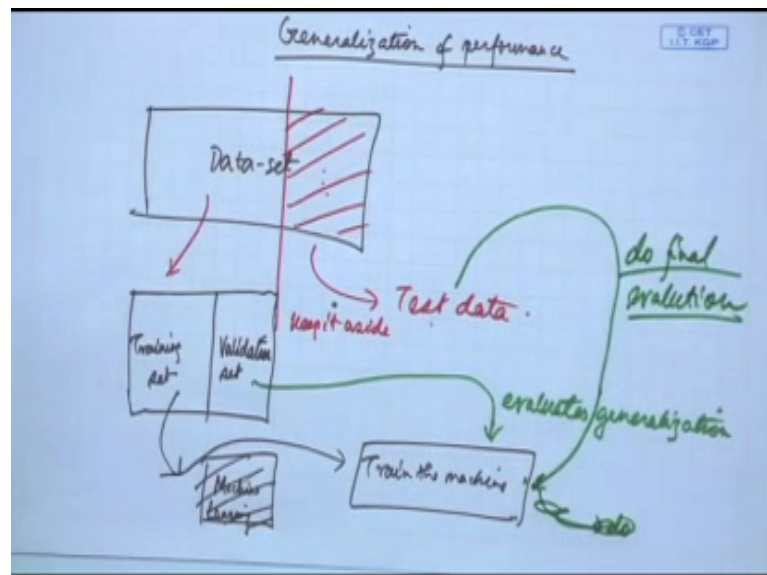 Generalization of performance
© CET
I.I.T. KGP
Data-set
Keep it aside
Test data.
do final
evalution
Training
set
Validation
set
evaluates generalization
Train the machine